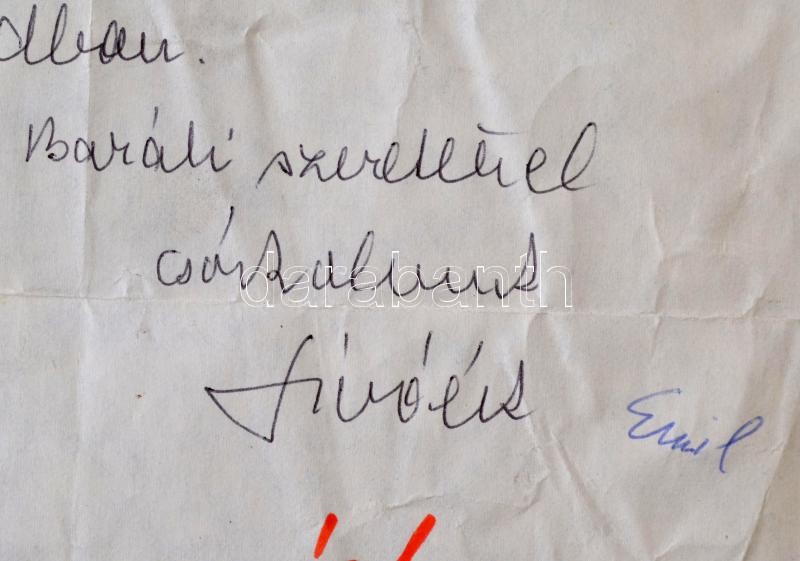 Baráti szeretettel
csókolunk
Sivóék
Emil
darabanth